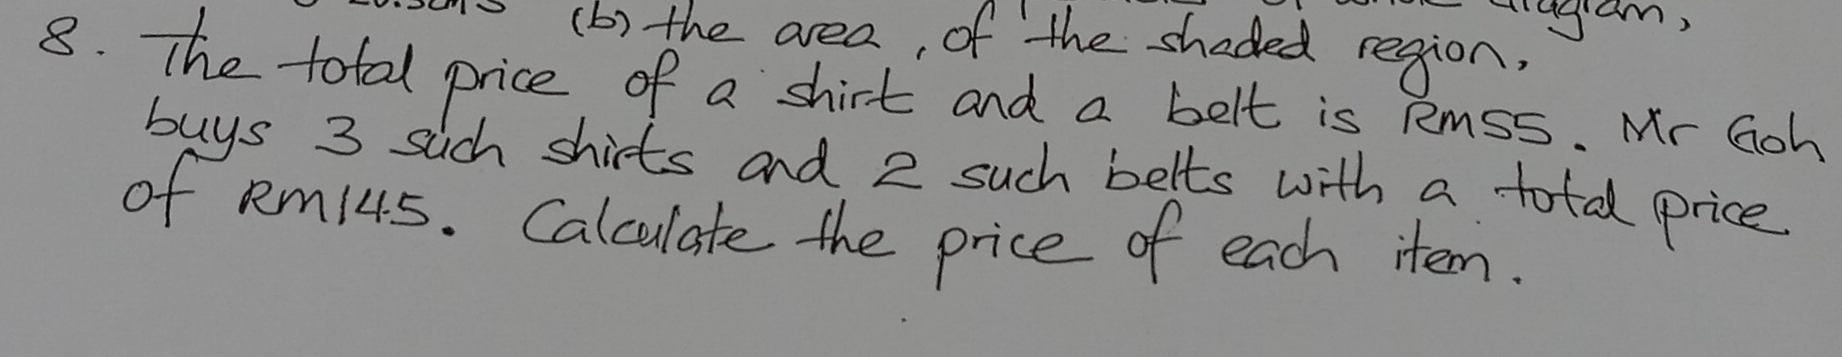 (b) the area, of the shaded region.
8. The total price of a shirt and a belt is RM55. Mr Goh
buys 3 such shirts and 2 such belts with a total price
of RM145. Calculate the price of each item.